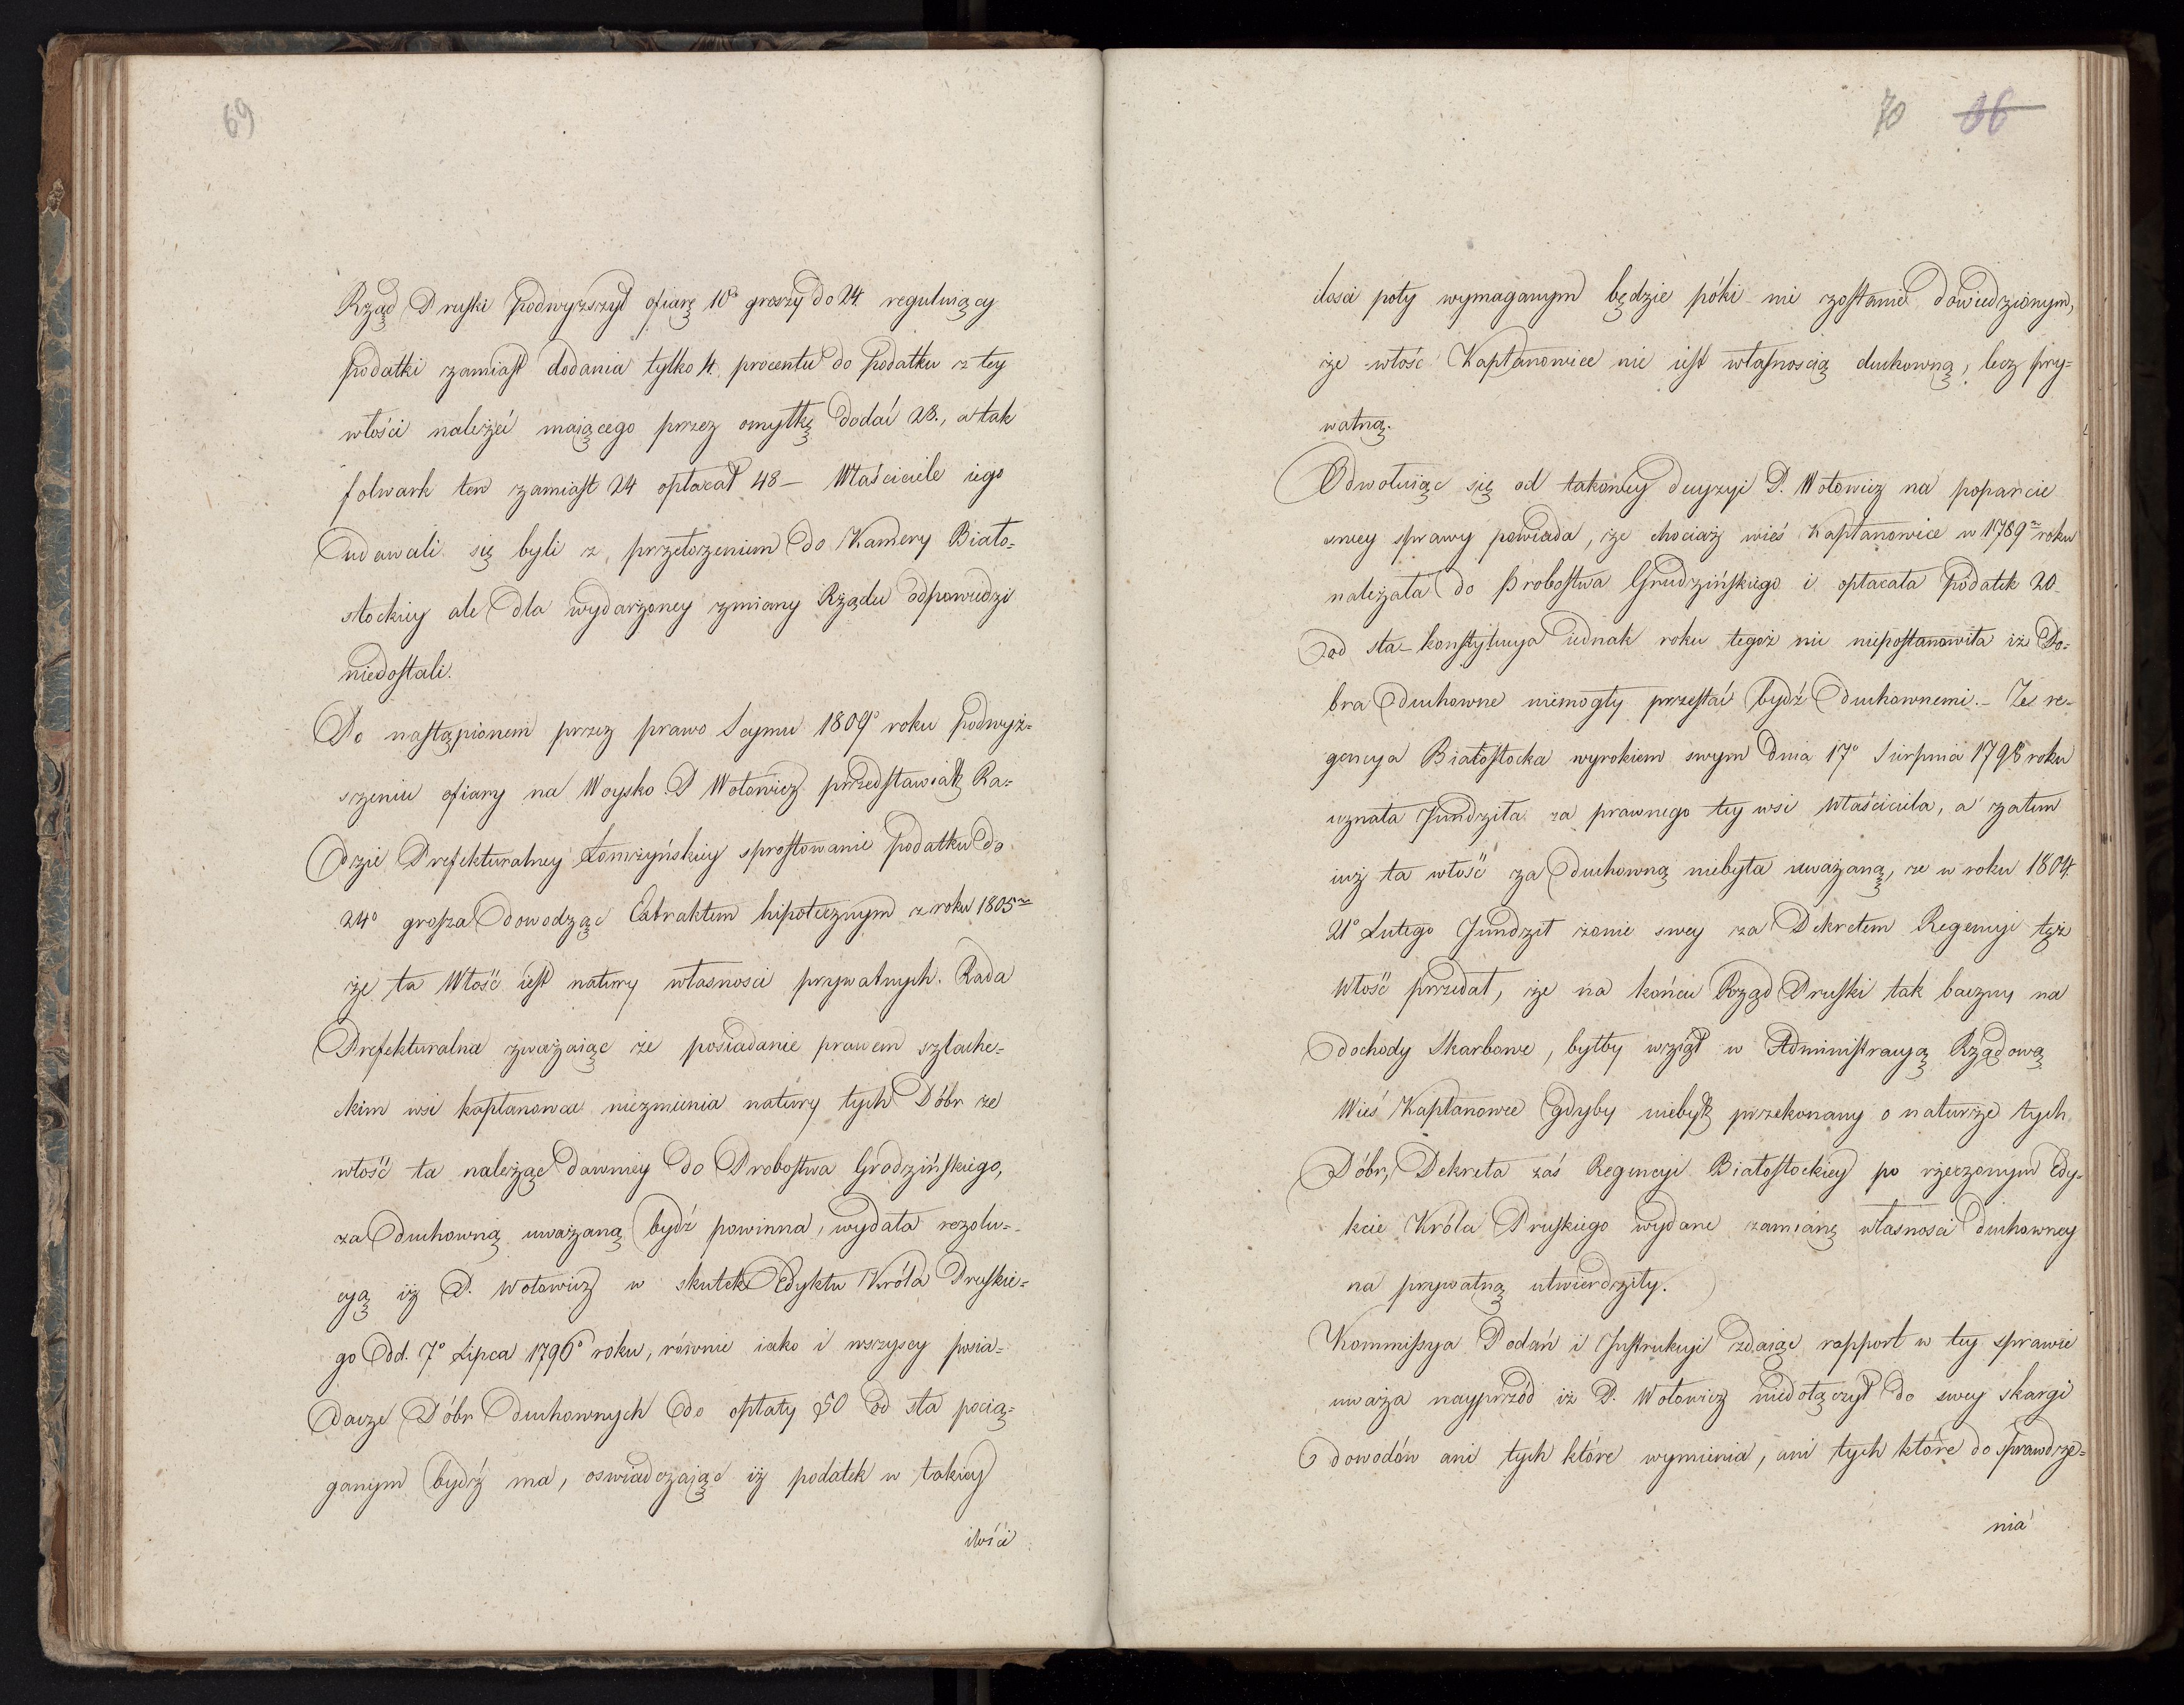 69
Rząd Pruski podwyższył ofiarę 10° groszy do 24 regulujący
podatki zamiast dodania tylko 14. procentu do podatku z tey
włości należeć maiącego przez omyłkę dodał 28., a tak
folwark ten zamiast 24 opłacał 48 – Właściciele iego
udawali się byli z przełożeniem do Kamery Biało-
stockiey ale dla wydarzoney zmiany Rządu odpowiedzi
niedostali.
Po nastąpionem przez prawo Seymu 1809° roku podwyż-
szeniu ofiary na Woysko P Wołowicz przedstawiał Ra-
dzie Prefekturalney Łomżyńskiey sprostowanie podatku do
24° grosza dowodząc Extraktem hipotecznym z roku 1805m
że ta Włość iest natury własnosci prywatnych. Rada
Prefekturalna zważaiąc że posiadanie prawem szlache-
ckim wsi kapłanowce niezmienia natury tych Dóbr że
włość ta należąc dawniey do Probostwa Grodzińskiego,
za duchowną uważaną bydź powinna, wydała rezolu-
cyą iż P. Wołowicz w skutek Edyktu Króla Pruskie-
go dd. 7° Lipca 1796° roku, równie iako i wszyscy posia-
dacze Dóbr duchownych do opłaty 50 od sta pocią-
ganym bydź ma, oswiadczaiąc iż podatek w takiey
ilości
70 36
ilosci póty wymaganym będzie póki nie zostanie dowiedzionym,
że włość Kapłanowice nie iest własnoscią duchowną, lecz pry-
watną.
Odwołuiąc się od takowey decyzyi P. Wołowicz na poparcie
swey sprawy powiada, że chociaż wieś Kapłanowice w 1789m roku
należała do Probostwa Grudzińskiego i opłacała podatek 20
od sta – konstytucya iednak roku tegoż nie niepostanowiła iż Do-
bra duchowne niemogły przestać bydź duchownemi. – Że re-
gencya Białostocka wyrokiem swym dnia 17° Sierpnia 1798 roku
uznała Jundziła za prawnego tey wsi Właściciela, a zatem
iuż ta włość za duchowną niebyła uważaną, że w roku 1804.
21° Lutego Jundził żonie swey za Dekretem Regencyi też
Włość przedał, że na końcu Rząd Pruski tak baczny na
dochody Skarbowe, byłby wziął w Administracyą Rządową
Wieś Kapłanowce gdyby niebył przekonany o naturze tych
Dóbr, Dekreta zaś Regencyi Białostockiey po rzeczonym Edy-
kcie Króla Pruskiego wydane zamianę własnosci duchowney
na prywatną utwierdziły.
Kommissya Podań i Instrukcyi zdaiąc rapport w tey sprawie
uważa nayprzod iż P. Wołowicz niedołączył do swey skargi
dowodów ani tych które wymienia, ani tych które do sprawdze-
nia